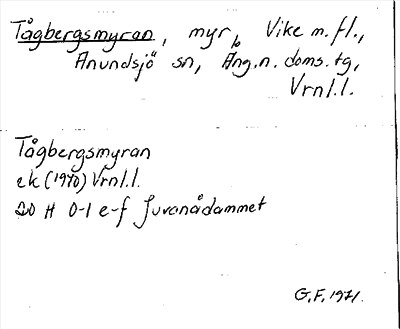 Tågbergsmyran, myr, Vike m.fl.,
Anundsjö sn, Ång.n.doms.tg,
Vrnl.l.
Tågbergsmyran
ek (1970) Vrnl.l.
20 H 0-1 e-f Juvanådammet
G.F. 1971.